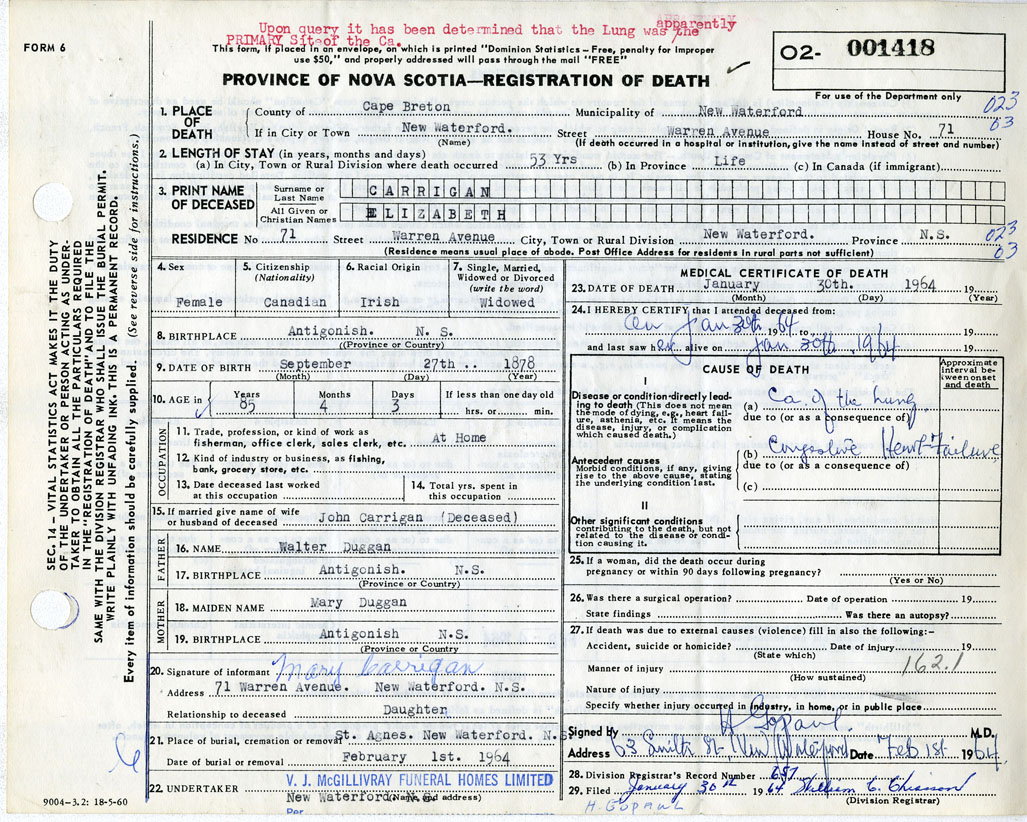 Upon query it has been determined that the Lung was the apparently
PRIMARY Site of the Ca.
FORM 6
This form, if placed in an envelope, on which is printed "Dominion Statistics – Free, penalty for improper
use $50," and properly addressed will pass through the mail "FREE"
O2- 001418
For use of the Department only
PROVINCE OF NOVA SCOTIA—REGISTRATION OF DEATH
023
03
1. PLACE OF DEATH County of Cape Breton Municipality of New Waterford
If in City or Town New Waterford. Street Warren Avenue House No. 71
(Name) (If death occurred in a hospital or institution, give the name instead of street and number)
2. LENGTH OF STAY (in years, months and days)
(a) In City, Town or Rural Division where death occurred 53 Yrs (b) In Province Life (c) In Canada (if immigrant)
3. PRINT NAME OF DECEASED
Surname or Last Name CARRIGAN
All Given or Christian Names ELIZABETH
RESIDENCE No 71 Street Warren Avenue City, Town or Rural Division New Waterford. Province N.S.
023
03
(Residence means usual place of abode. Post Office Address for residents in rural parts not sufficient)
4. Sex Female
5. Citizenship (Nationality) Canadian
6. Racial Origin Irish
7. Single, Married, Widowed or Divorced (write the word) Widowed
8. BIRTHPLACE Antigonish. N. S.
(Province or Country)
9. DATE OF BIRTH September 27th .. 1878
(Month) (Day) (Year)
10. AGE in Years 85 Months 4 Days 3 If less than one day old
hrs. or min.
OCCUPATION
11. Trade, profession, or kind of work as fisherman, office clerk, sales clerk, etc. At Home
12. Kind of industry or business, as fishing, bank, grocery store, etc.
13. Date deceased last worked at this occupation
14. Total yrs. spent in this occupation
15. If married give name of wife or husband of deceased John Carrigan (Deceased)
FATHER
16. NAME Walter Duggan
17. BIRTHPLACE Antigonish. N.S.
(Province or Country)
MOTHER
18. MAIDEN NAME Mary Duggan
19. BIRTHPLACE Antigonish N.S.
(Province or Country)
20. Signature of informant Mary Carrigan
Address 71 Warren Avenue. New Waterford. N.S.
Relationship to deceased Daughter
21. Place of burial, cremation or removal St. Agnes. New Waterford. N.S
Date of burial or removal February 1st. 1964
22. UNDERTAKER V. J. McGILLIVRAY FUNERAL HOMES LIMITED
New Waterford, N.S.
(Name and address)
Per
9004-3.2: 18-5-60
MEDICAL CERTIFICATE OF DEATH
23. DATE OF DEATH January 30th. 1964 19
(Month) (Day) (Year)
24. I HEREBY CERTIFY that I attended deceased from:
on Jan 30th 64 19 to 19
and last saw her alive on Jan 30th 1964 19
CAUSE OF DEATH
Approximate interval between onset and death
I
Disease or condition directly leading to death (This does not mean the mode of dying, e.g., heart failure, asthenia, etc. It means the disease, injury, or complication which caused death.)
(a) Ca. of the Lung
due to (or as a consequence of)
Antecedent causes
Morbid conditions, if any, giving rise to the above cause, stating the underlying condition last.
(b) Congestive Heart Failure
due to (or as a consequence of)
(c)
II
Other significant conditions
contributing to the death, but not related to the disease or condition causing it.
25. If a woman, did the death occur during pregnancy or within 90 days following pregnancy?
(Yes or No)
26. Was there a surgical operation? Date of operation 19
State findings Was there an autopsy?
27. If death was due to external causes (violence) fill in also the following:–
Accident, suicide or homicide? Date of injury 19
(State which)
Manner of injury 162.1
(How sustained)
Nature of injury
Specify whether injury occurred in industry, in home, or in public place
Signed by H Gopaul. M.D.
Address 63 Smith St. New Waterford Date Feb 1st 1964
28. Division Registrar's Record Number 657
29. Filed January 30th 1964 William C. Chiasson
(Division Registrar)
H. GOPAUL
SEC. 14 – VITAL STATISTICS ACT MAKES IT THE DUTY
OF THE UNDERTAKER OR PERSON ACTING AS UNDER-
TAKER TO OBTAIN ALL THE PARTICULARS REQUIRED
IN THE "REGISTRATION OF DEATH" AND TO FILE THE
SAME WITH THE DIVISION REGISTRAR WHO SHALL ISSUE THE BURIAL PERMIT.
WRITE PLAINLY WITH UNFADING INK. THIS IS A PERMANENT RECORD.
Every item of information should be carefully supplied. (See reverse side for instructions.)